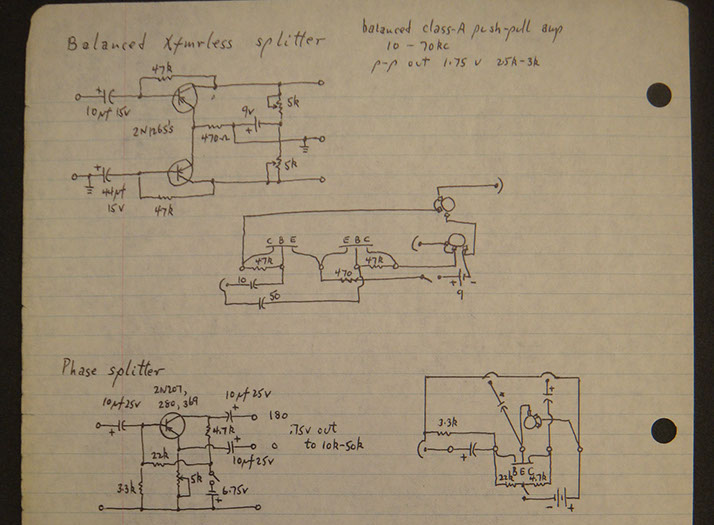 Balanced Xfmrless splitter
balanced class-A push-pull amp
10 - 70kc
p-p out 1.75 v 25k-3k
47k
+
10µf 15v
5k
9v
+
2N1265's
470Ω
5k
+
44µf
15v
47k
C B E
E B C
47k
47k
470
10
50
+ -
9
Phase splitter
2N207,
280, 369
10µf 25v
10µf 25v
+
180
+
4.7k
.75v out
to 10k-50k
+
0
22k
10µf 25v
3.3k
5k
6.75v
+
+
3.3k
+
B E C
22k
4.7k
- +